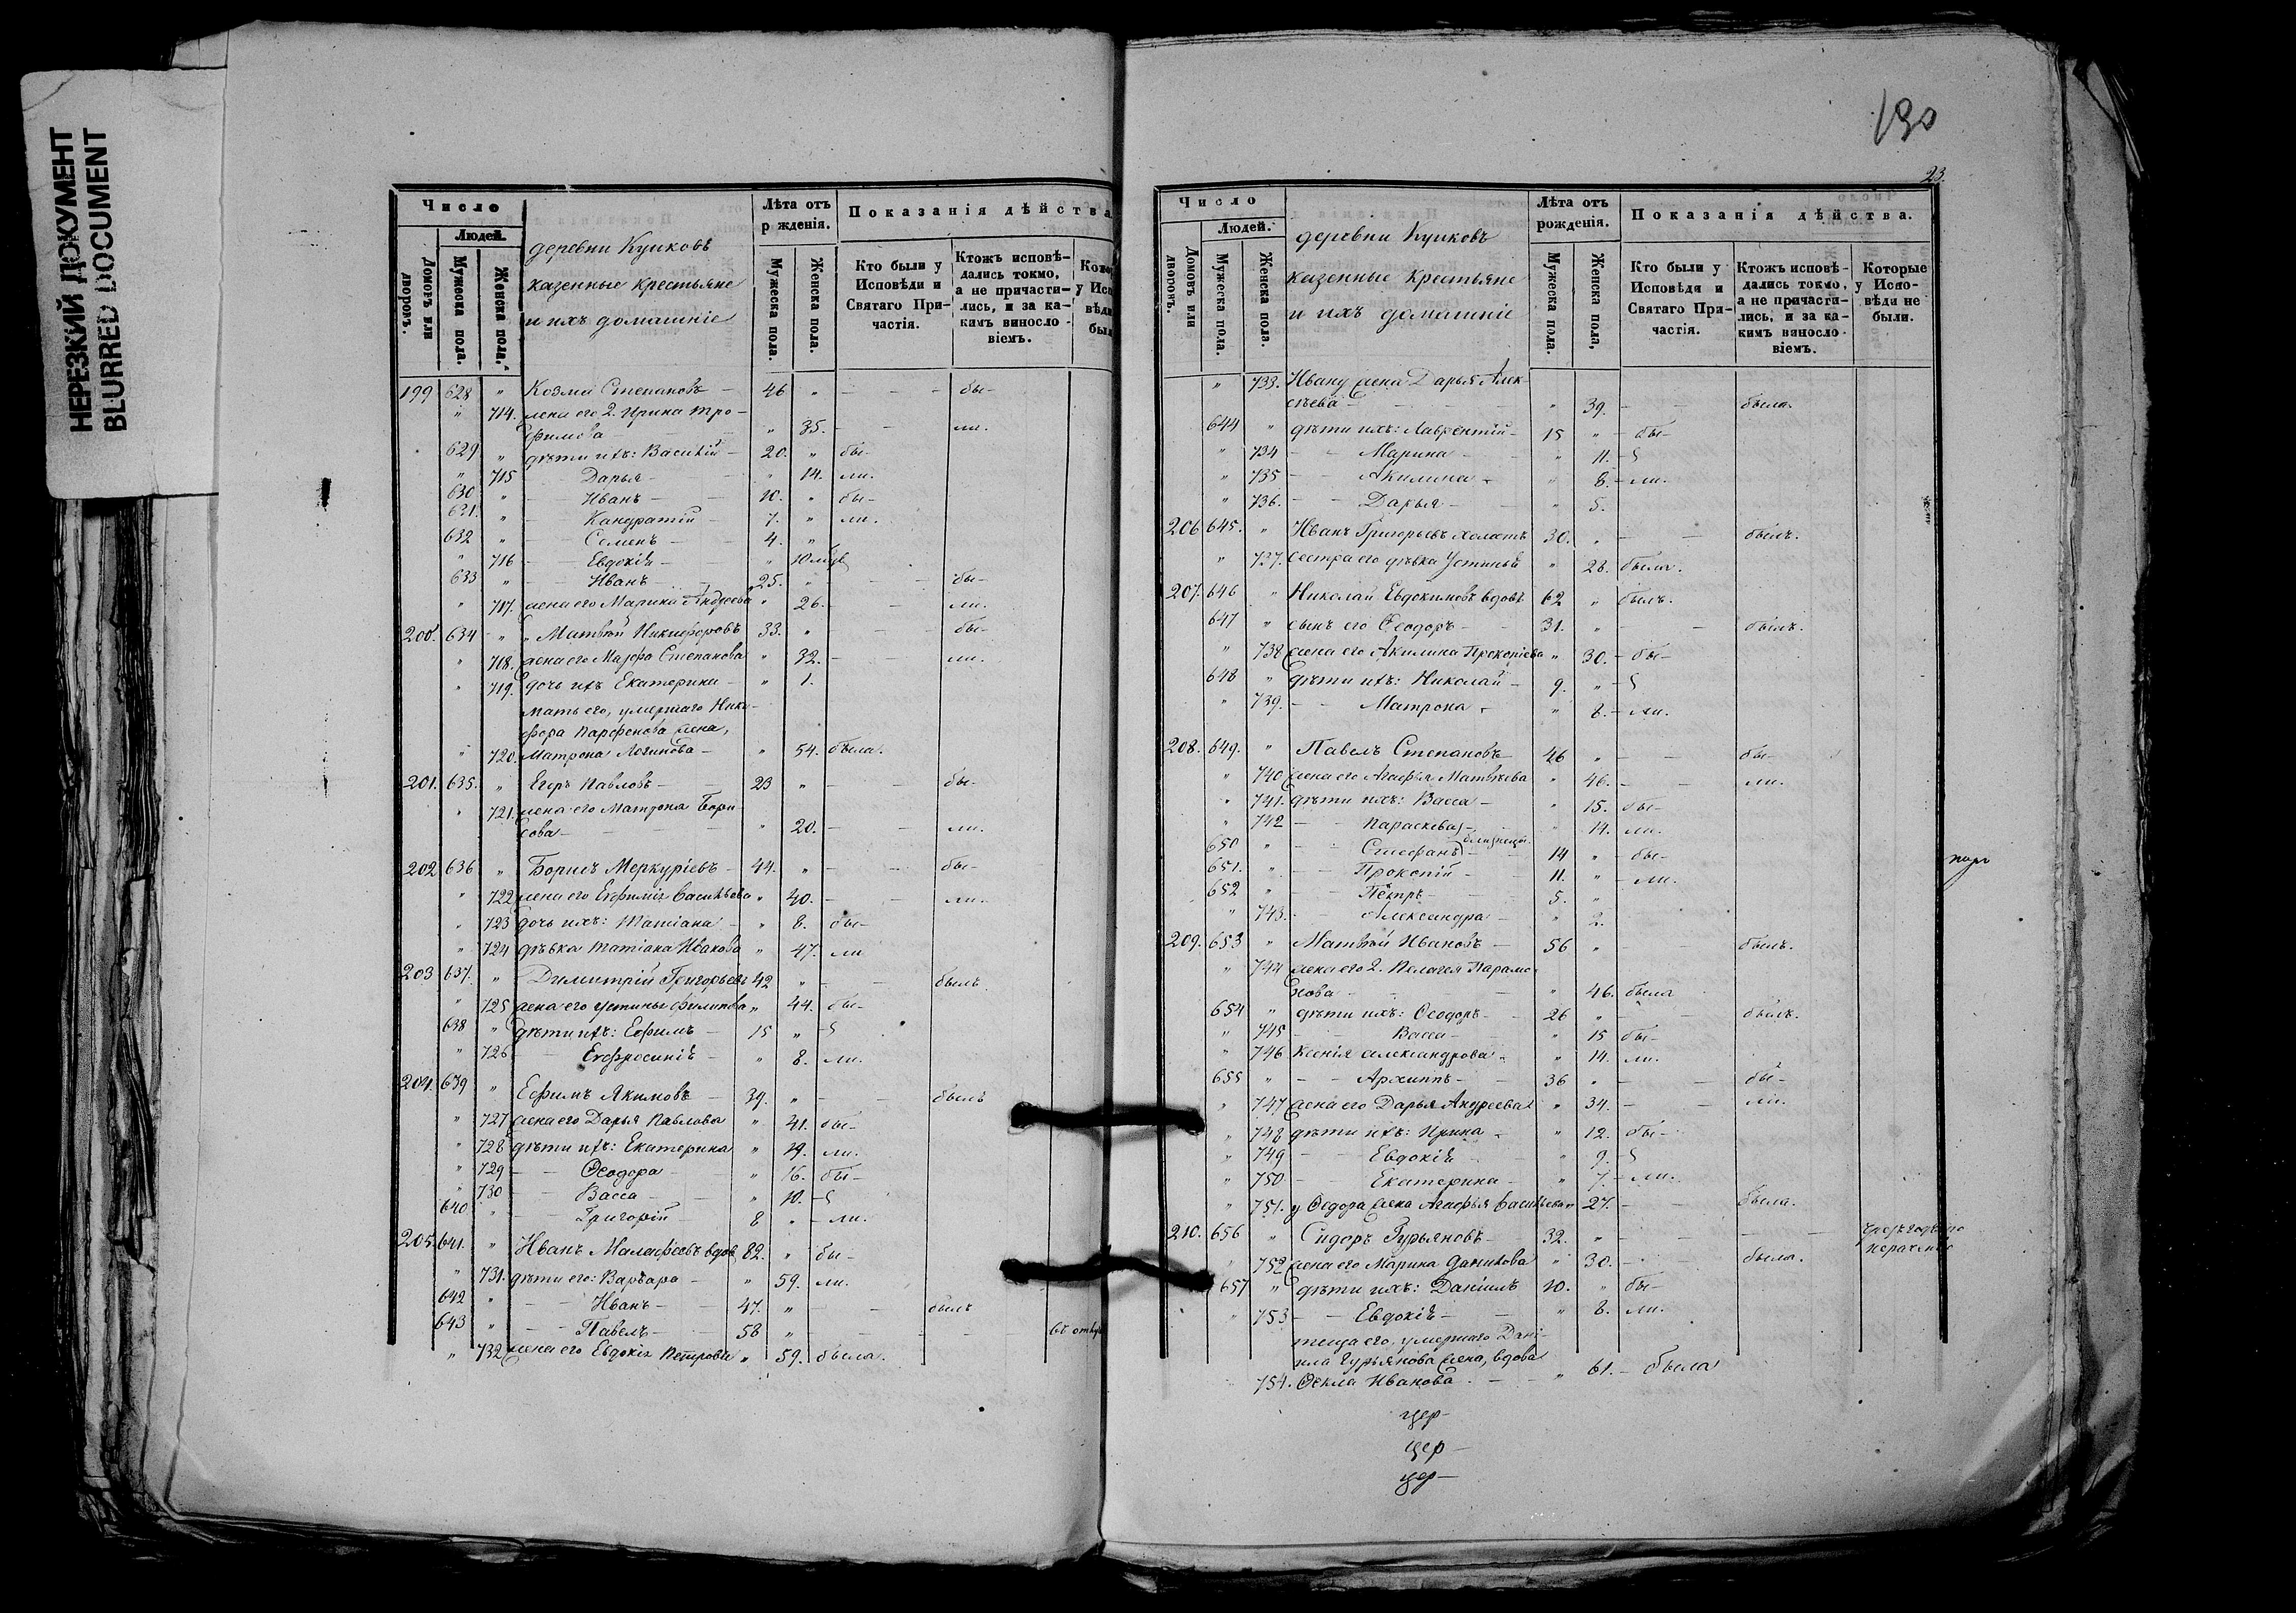 НЕРЕЗКИЙ ДОКУМЕНТ
BLURRED DOCUMENT
Число
Людей.
Домовъ или дворовъ.
Мужеска пола.
Женска пола.
деревни Куиковъ
казенные крестьяне
и ихъ домашніе
Лѣта отъ
р жденія.
Мужеска пола.
Женска пола.
Показанія дѣйства
Кто были у
Исповѣди и
Святаго При-
частія.
Ктожъ исповѣ-
дались токмо,
а не причасти-
лись, и за ка-
кимъ винosло-
віемъ.
199 628 " Козма Степановъ - 46 " - - бы-
" 714. жена его 2. Ирина Тро-
фимова - " 35. - - ли.
629 " дѣти ихъ: Василій - 20. " бы-
" 715 - Дарья - " 14. ли.
630 " - Иванъ - 10. " бы-
631. " - Кандратій - 7. " ли.
632 " - Семенъ - 4. "
" 716 - Евдокія - "
633 " - Иванъ - 25. " - - бы-
" 717. жена его Марина Андреева " 26. - ли.
200. 634 " Матвѣй Никифоровъ 33. " - - бы-
" 718. жена его Марфа Степанова " 32. - - ли.
" 719. дочь ихъ Екатерина - " 1.
мать его, умершаго Ники-
фора Парфенова жена,
" 720. Матрона Логинова - " 54. была.
201. 635. " Егоръ Павловъ - 23 " - - бы-
" 721. жена его Матрона Бори-
сова - - - " 20. - - ли.
202 636 " Борисъ Меркуріевъ - 44. " - - бы-
" 722 жена его Евфимія Васильева " 40. - - ли.
" 723 дочь ихъ: Татіана - " 8. бы-
" 724 дѣвка Татіана Иванова " 47. ли
203 637. " Димитрій Григорьевъ 42 " - - былъ.
" 725 жена его Устинья Филипова " 44. бы-
638 " дѣти ихъ: Ефимъ - 15 " - 
" 726 - Евфросинія - " 8. ли.
204. 639 " Ефимъ Якимовъ - 39. " - - былъ
" 727 жена его Дарья Павлова " 41. бы-
" 728 дѣти ихъ: Екатерина " 19. ли.
" 729 - - Ѳеодора - " 16. бы-
" 730 - - Васса - " 10. -
640 " - - Григорій - 8 " - ли.
205. 641. " Иванъ Малафѣевъ вдов 82. " бы-
" 731. дѣти его: Варвара - " 59. ли.
642 " - - Иванъ - 47. " - - былъ
643 " - - Павелъ - 58 " - - -
" 732 жена его Евдокія Петрова " 59. была.
130
23.
Число
Людей.
Домовъ или дворовъ.
Мужеска пола.
Женска пола.
деревни Куиковъ
казенные крестьяне
и ихъ домашніе
Лѣта отъ
рожденія.
Мужеска пола.
Женска пола,
Показанія дѣйства.
Кто были у
Исповѣди и
Святаго При-
частія.
Ктожъ исповѣ-
дались токмо,
а не причасти-
лись, и за ка-
кимъ винosло-
віемъ.
Которые
у Испо-
вѣди не
были.
" 733. Ивану жена Дарья Алек-
сѣева - - - " 39. - - была.
644 " дѣти ихъ: Лаврентій - 15 " - бы-
" 734 - - Марина - " 11. -
" 735 - - Акилина - " 8. - ли.
" 736. - - Дарья - " 5.
206 645. " Иванъ Григорьевъ холостъ 30. " - - былъ.
" 737. сестра его дѣвка Устинья " 28. была.
207. 646 " Николай Евдокимовъ вдовъ 62 " былъ.
647 " сынъ его Ѳеодоръ - 31. " - - былъ.
" 738 жена его Акилина Прокопіева " 30. - бы-
648 " дѣти ихъ: Николай - 9. " -
" 739. - - Матрона - " 8. - ли.
208. 649. " Павелъ Степановъ - 46 " - - бы-
" 740 жена его Агафья Матвѣева " 46. - - ли.
" 741. дѣти ихъ: Васса - " 15. бы-
" 742 - - Параскева - " 14. ли.
близнецы
650 " - - Стефанъ - 14 " - бы-
651. " - - Прокопій - 11. " - ли.
652 " - - Петръ - 5. "
" 743. - - Александра - " 2.
209. 653 " Матвѣй Ивановъ - 56 " - - былъ.
" 744 жена его 2. Пелагея Парамо-
нова - - " 46. была
654 " дѣти ихъ: Ѳеодоръ - 26 " - - былъ.
" 745 - - Васса - " 15 бы-
" 746 Ксенія Александрова - " 14. ли.
655 " - - Архиппъ - 36 " - - бы-
" 747 жена его Дарья Андреева " 34. - - ли.
" 748 дѣти ихъ: Ирина - " 12. бы-
" 749 - - Евдокія - " 9. -
" 750 - - Екатерина - " 7. - ли.
" 751. у Ѳедора жена Агафья Васильева " 27. - - была.
210. 656 " Сидоръ Гурьяновъ - 32. " - - -
" 752 жена его Марина Данилова " 30. - - была.
657 " дѣти ихъ: Даніилъ 10. " бы-
" 753 - - Евдокія - " 8. ли.
теща его, умершаго Дані-
ила Гурьянова жена, вдова
754. Ѳекла Иванова - - " 61. - была